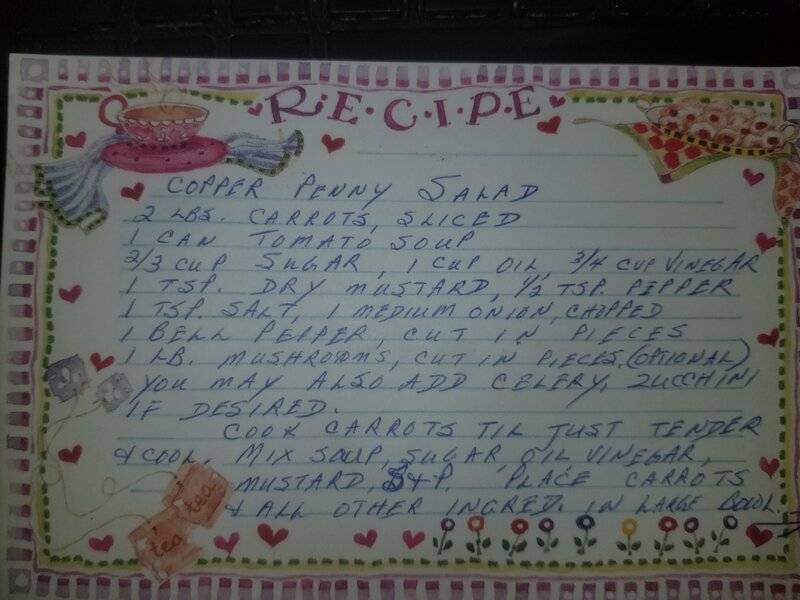 R·E·C·I·P·E
COPPER PENNY SALAD
2 LBS. CARROTS, SLICED
1 CAN TOMATO SOUP
2/3 CUP SUGAR, 1 CUP OIL, 3/4 CUP VINEGAR
1 TSP. DRY MUSTARD, 1/2 TSP. PEPPER
1 TSP. SALT, 1 MEDIUM ONION, CHOPPED
1 BELL PEPPER, CUT IN PIECES
1 LB. MUSHROOMS, CUT IN PIECES. (OPTIONAL)
YOU MAY ALSO ADD CELERY, ZUCCHINI
IF DESIRED.
COOK CARROTS TIL JUST TENDER
& COOL. MIX SOUP, SUGAR, OIL VINEGAR,
MUSTARD, S+P. PLACE CARROTS
& ALL OTHER INGRED. IN LARGE BOWL.
tea
tea